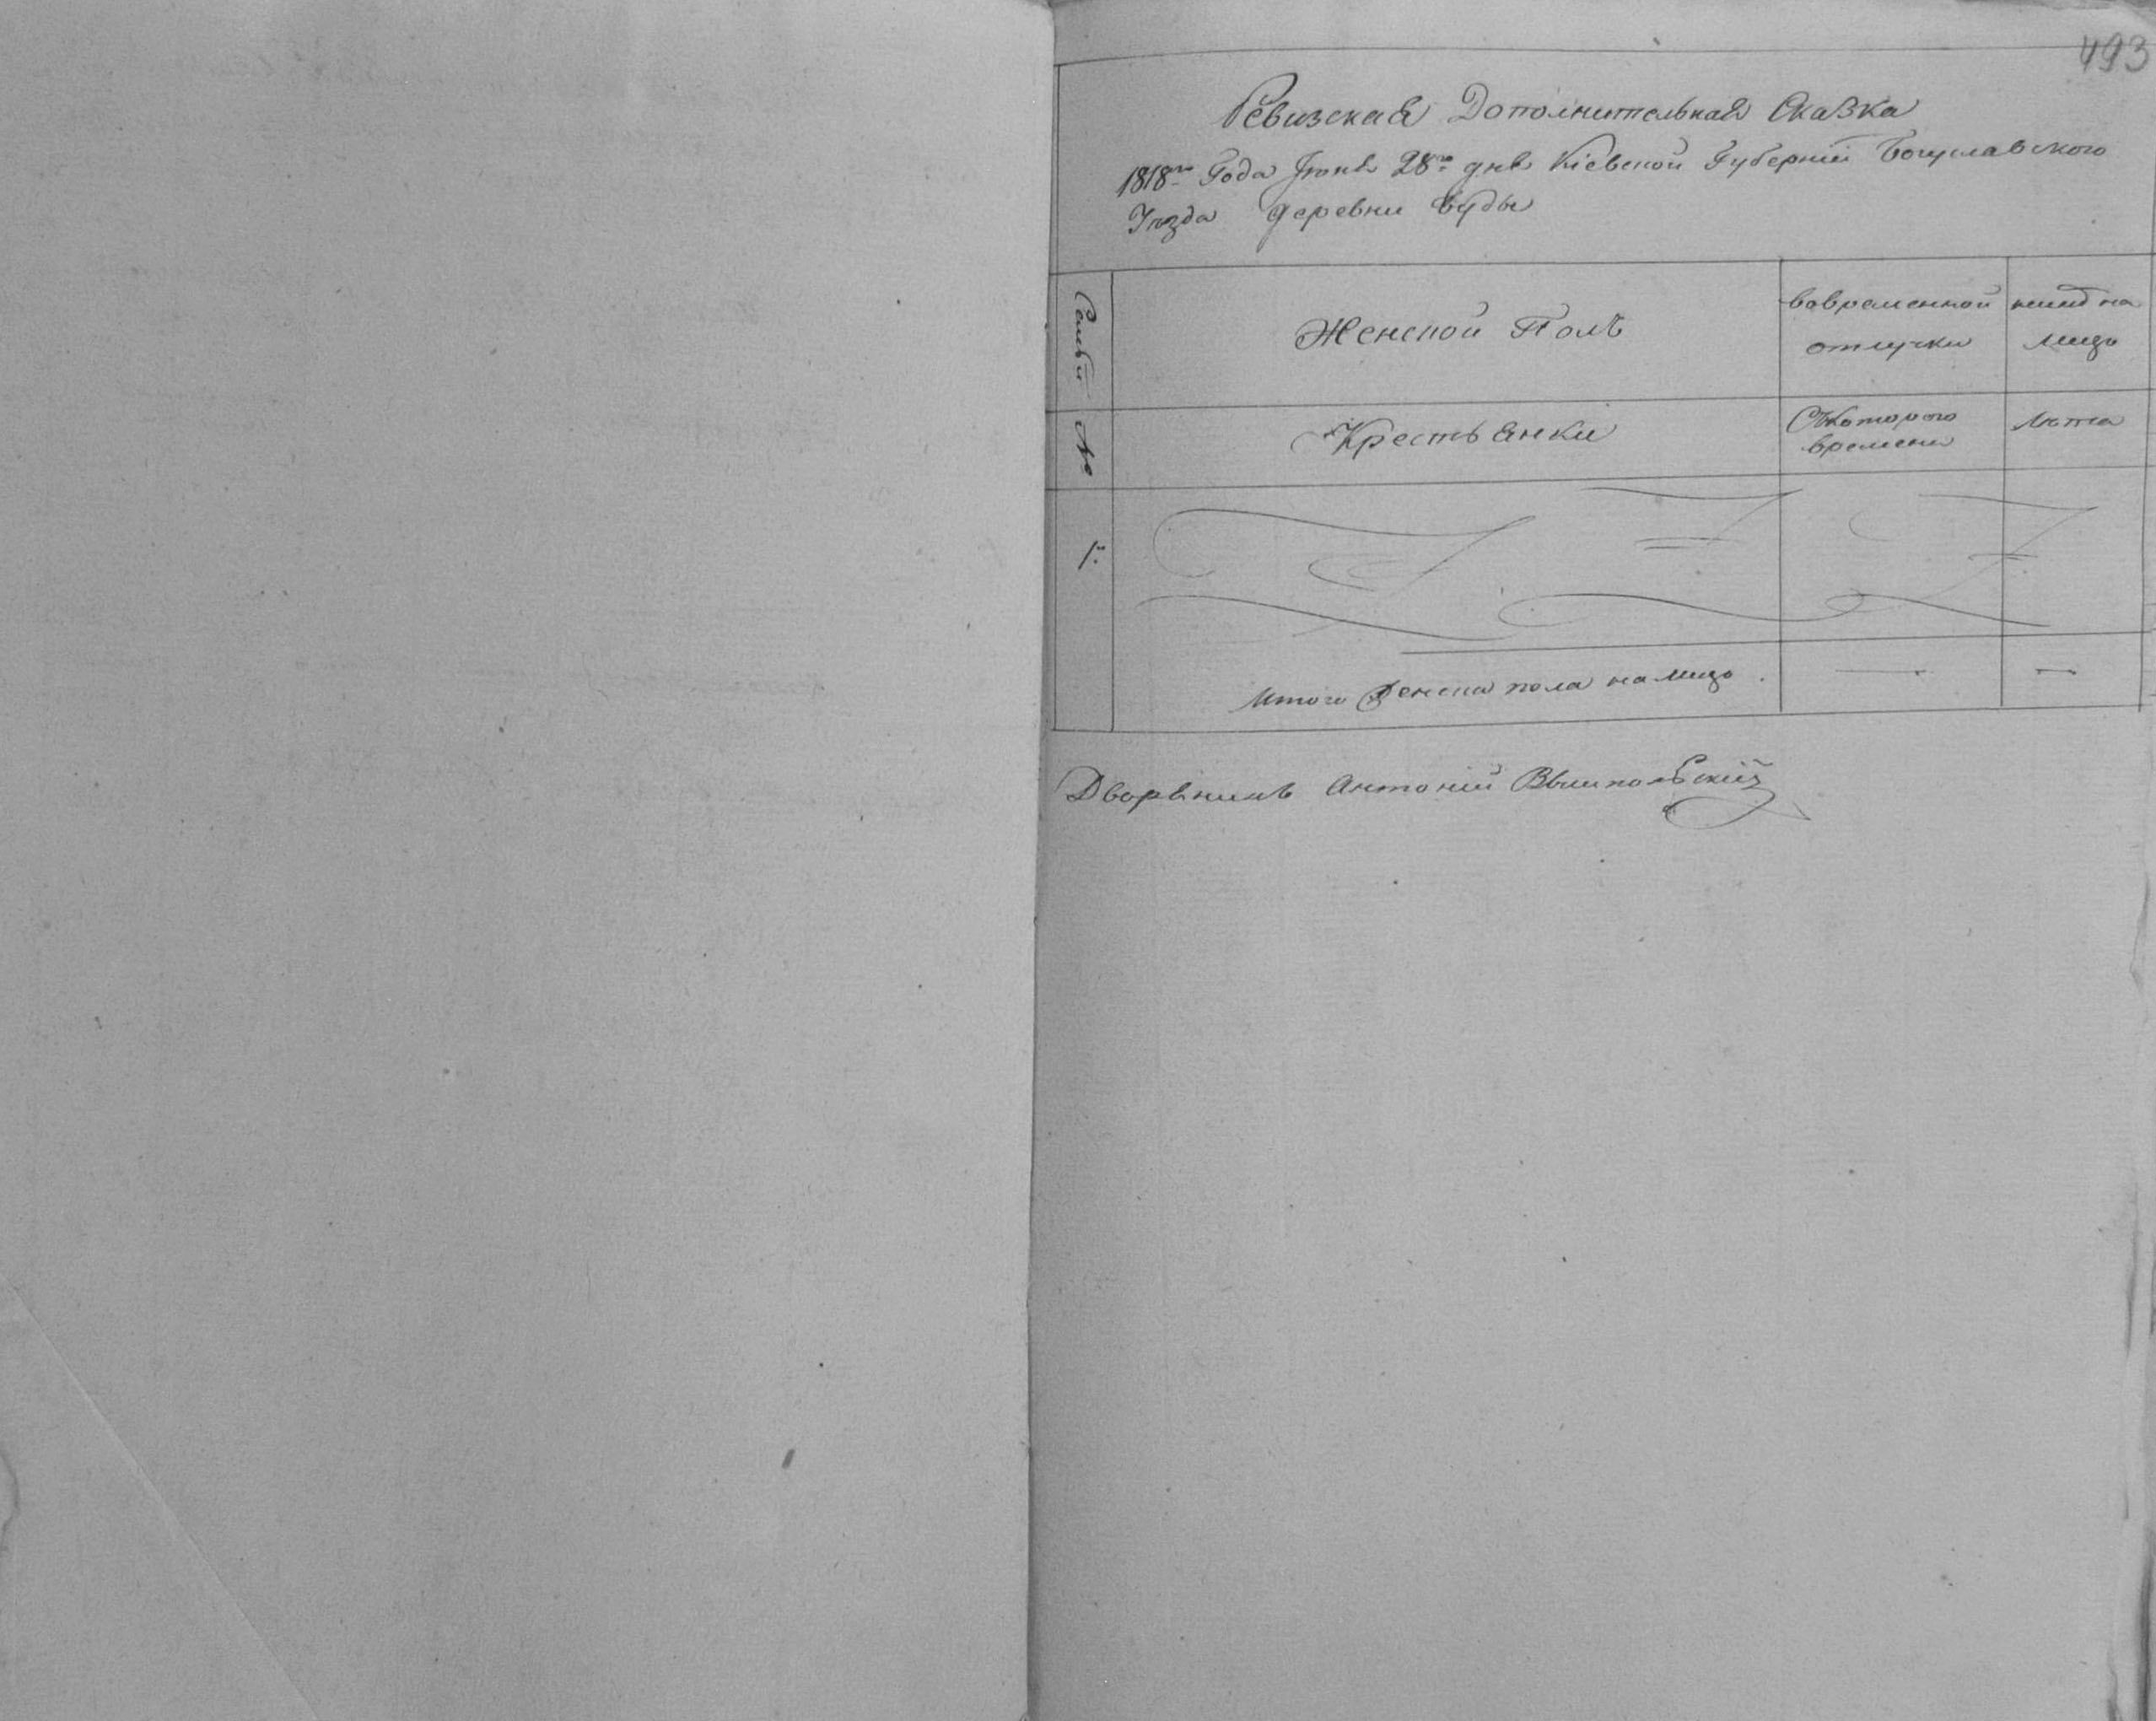 493
Ревизская Дополнительная Сказка
1818го Года Іюня 28го дня Кіевской Губерніи Богуславского
Уѣзда деревни Буды
Семьи №
Женской Полъ
вовременной отлучки
нынѣ на лицо
Крестьянки
Съкоторого времени
Лѣта
1.
Итого женска пола налицо
Дворянинъ Антоній Вышпольскій